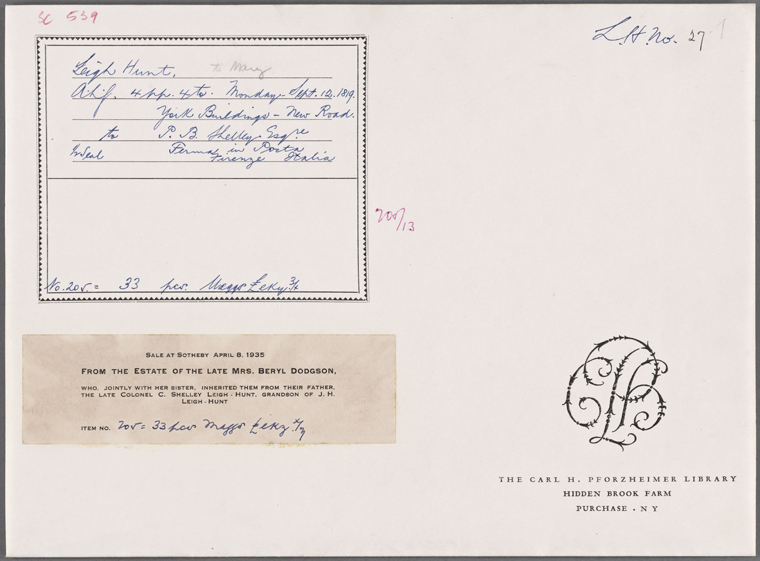 SC 539
L.H. No. 27
Leigh Hunt, to Mary
A.L.S. 4 pp. 4to. Monday - Sept. 12, 1819.
York Buildings - New Road.
to P. B. Shelley Esqre
Ferma in Posta
Firenze Italia
205/13
No. 205 = 33 pcs. Maggs
SALE AT SOTHEBY APRIL 8, 1935
FROM THE ESTATE OF THE LATE MRS. BERYL DODGSON,
WHO, JOINTLY WITH HER SISTER, INHERITED THEM FROM THEIR FATHER,
THE LATE COLONEL C. SHELLEY LEIGH-HUNT, GRANDSON OF J. H.
LEIGH-HUNT
ITEM NO. 205 = 33 pcs Maggs
THE CARL H. PFORZHEIMER LIBRARY
HIDDEN BROOK FARM
PURCHASE · NY